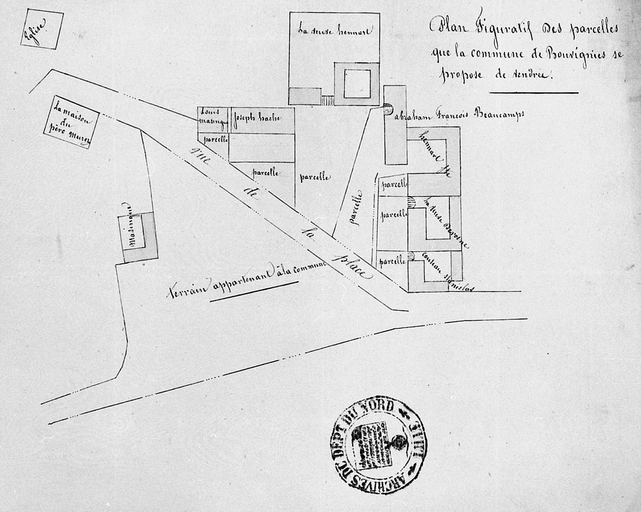 Plan Figuratif Des parcelles
que la commune de Bouvignies se
propose de vendre.
Eglise
La veuve hennart
La maison
du
père
Louis
joseph bache
abraham François Beaucamps
parcelle
parcelle
parcelle
hennart
parcelle
parcelle
parcelle
parcelle
la veuve
rue de la place
Terrain appartenant à la commune
ARCHIVES DU DEPT DU NORD
LILLE